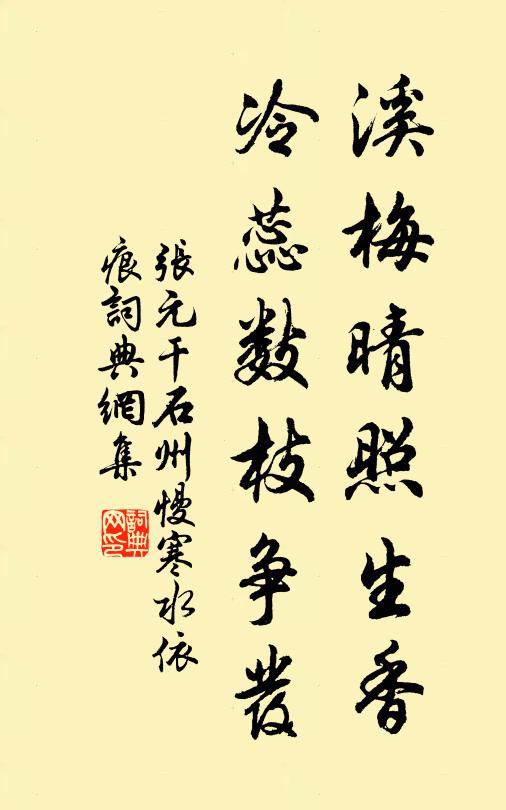 溪梅晴照生香
冷蕊数枝争發
張元干石州慢寒水依
痕詞典網集
詞典
网印